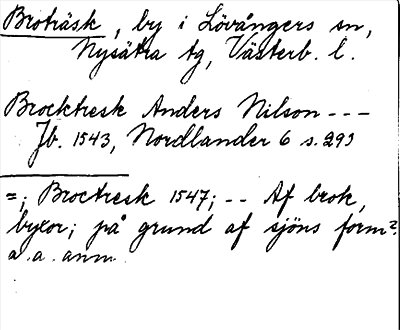 Broträsk, by i Lövångers sn,
Nysätra tg, Västerb. l.
Brocktresk Anders Nilson ---
Jb. 1543, Nordlander 6 s. 293
=; Broctresk 1547; -- Af brok,
byxor; på grund af sjöns form?
a. a. anm.